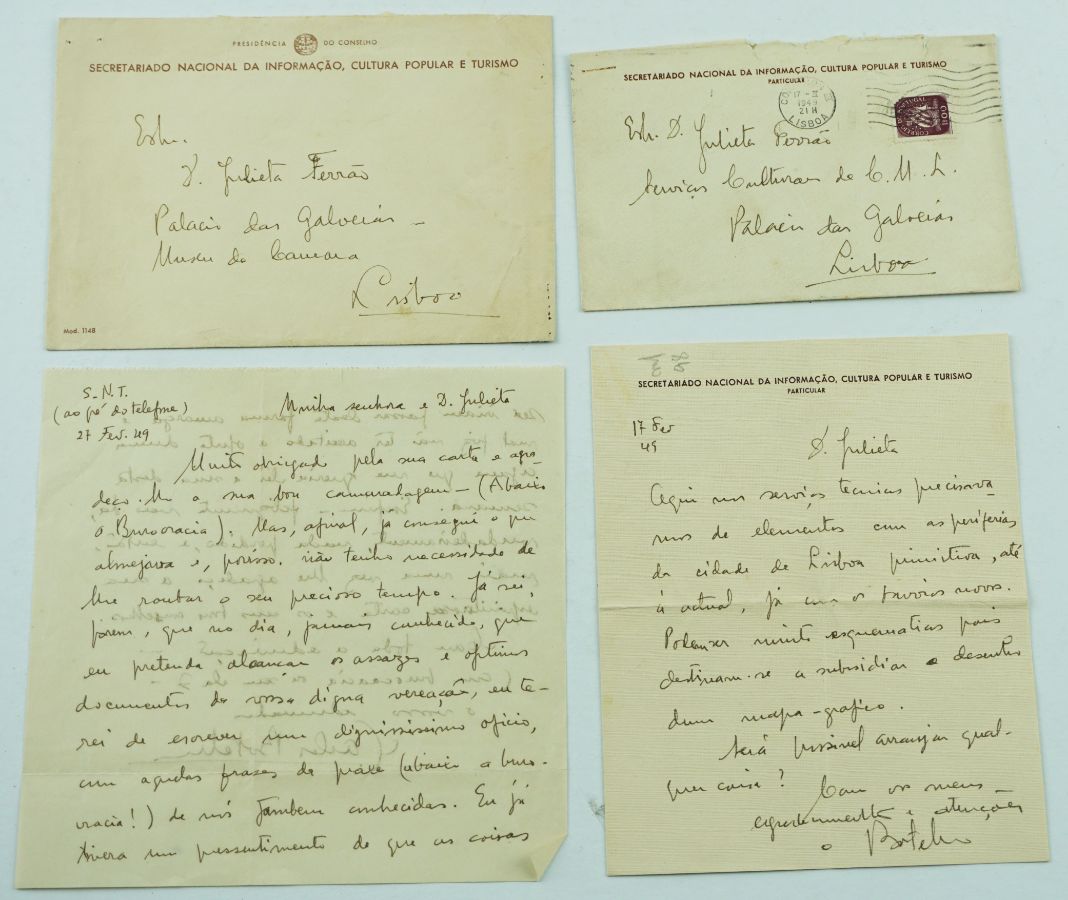 PRESIDÊNCIA DO CONSELHO
SECRETARIADO NACIONAL DA INFORMAÇÃO, CULTURA POPULAR E TURISMO
Exh.
D. Julieta Ferrão
Palacio das Galveias –
Museu da Camara
Lisboa
Mod. 1148
SECRETARIADO NACIONAL DA INFORMAÇÃO, CULTURA POPULAR E TURISMO
PARTICULAR
17-II
1949
21 H
LISBOA
Exh. D. Julieta Ferrão
Serviços Culturaes da C. M. L.
Palacio das Galveias
Lisboa
S.N.I.
(ao pé do telefone)
27 Fev. 49
Minha senhora e D. Julieta
Muito obrigado pela sua carta e agra-
deço-lhe a sua boa camaradagem – (Abaixo
a Burocracia). Mas, afinal, já consegui o que
almejava e, porisso, não tenho necessidade de
lhe roubar o seu precioso tempo. Já sei,
porem, que no dia, jamais conhecido, que
eu pretenda alcançar os assazes e optimos
documentos da vossa digna vereação, eu te-
rei de escrever um dignississimo oficio,
com aquelas frases da praxe (abaixo a buro-
cracia!) de nós tambem conhecidas. Eu já
tivera um pressentimento de que as coisas
SECRETARIADO NACIONAL DA INFORMAÇÃO, CULTURA POPULAR E TURISMO
PARTICULAR
17 Fev
49
D. Julieta
Aqui nos serviços tecnicos precisava-
mos de elementos com as periferias
da cidade de Lisboa primitiva, até
á actual, já com os bairros novos.
Podem ser muito esquematicas pois
destinam-se a subsidiar o desenho
dum mapa-grafico.
Será possivel arranjar qual-
quer coisa?
Com os meus
agradecimentos e atenções
o Botelho